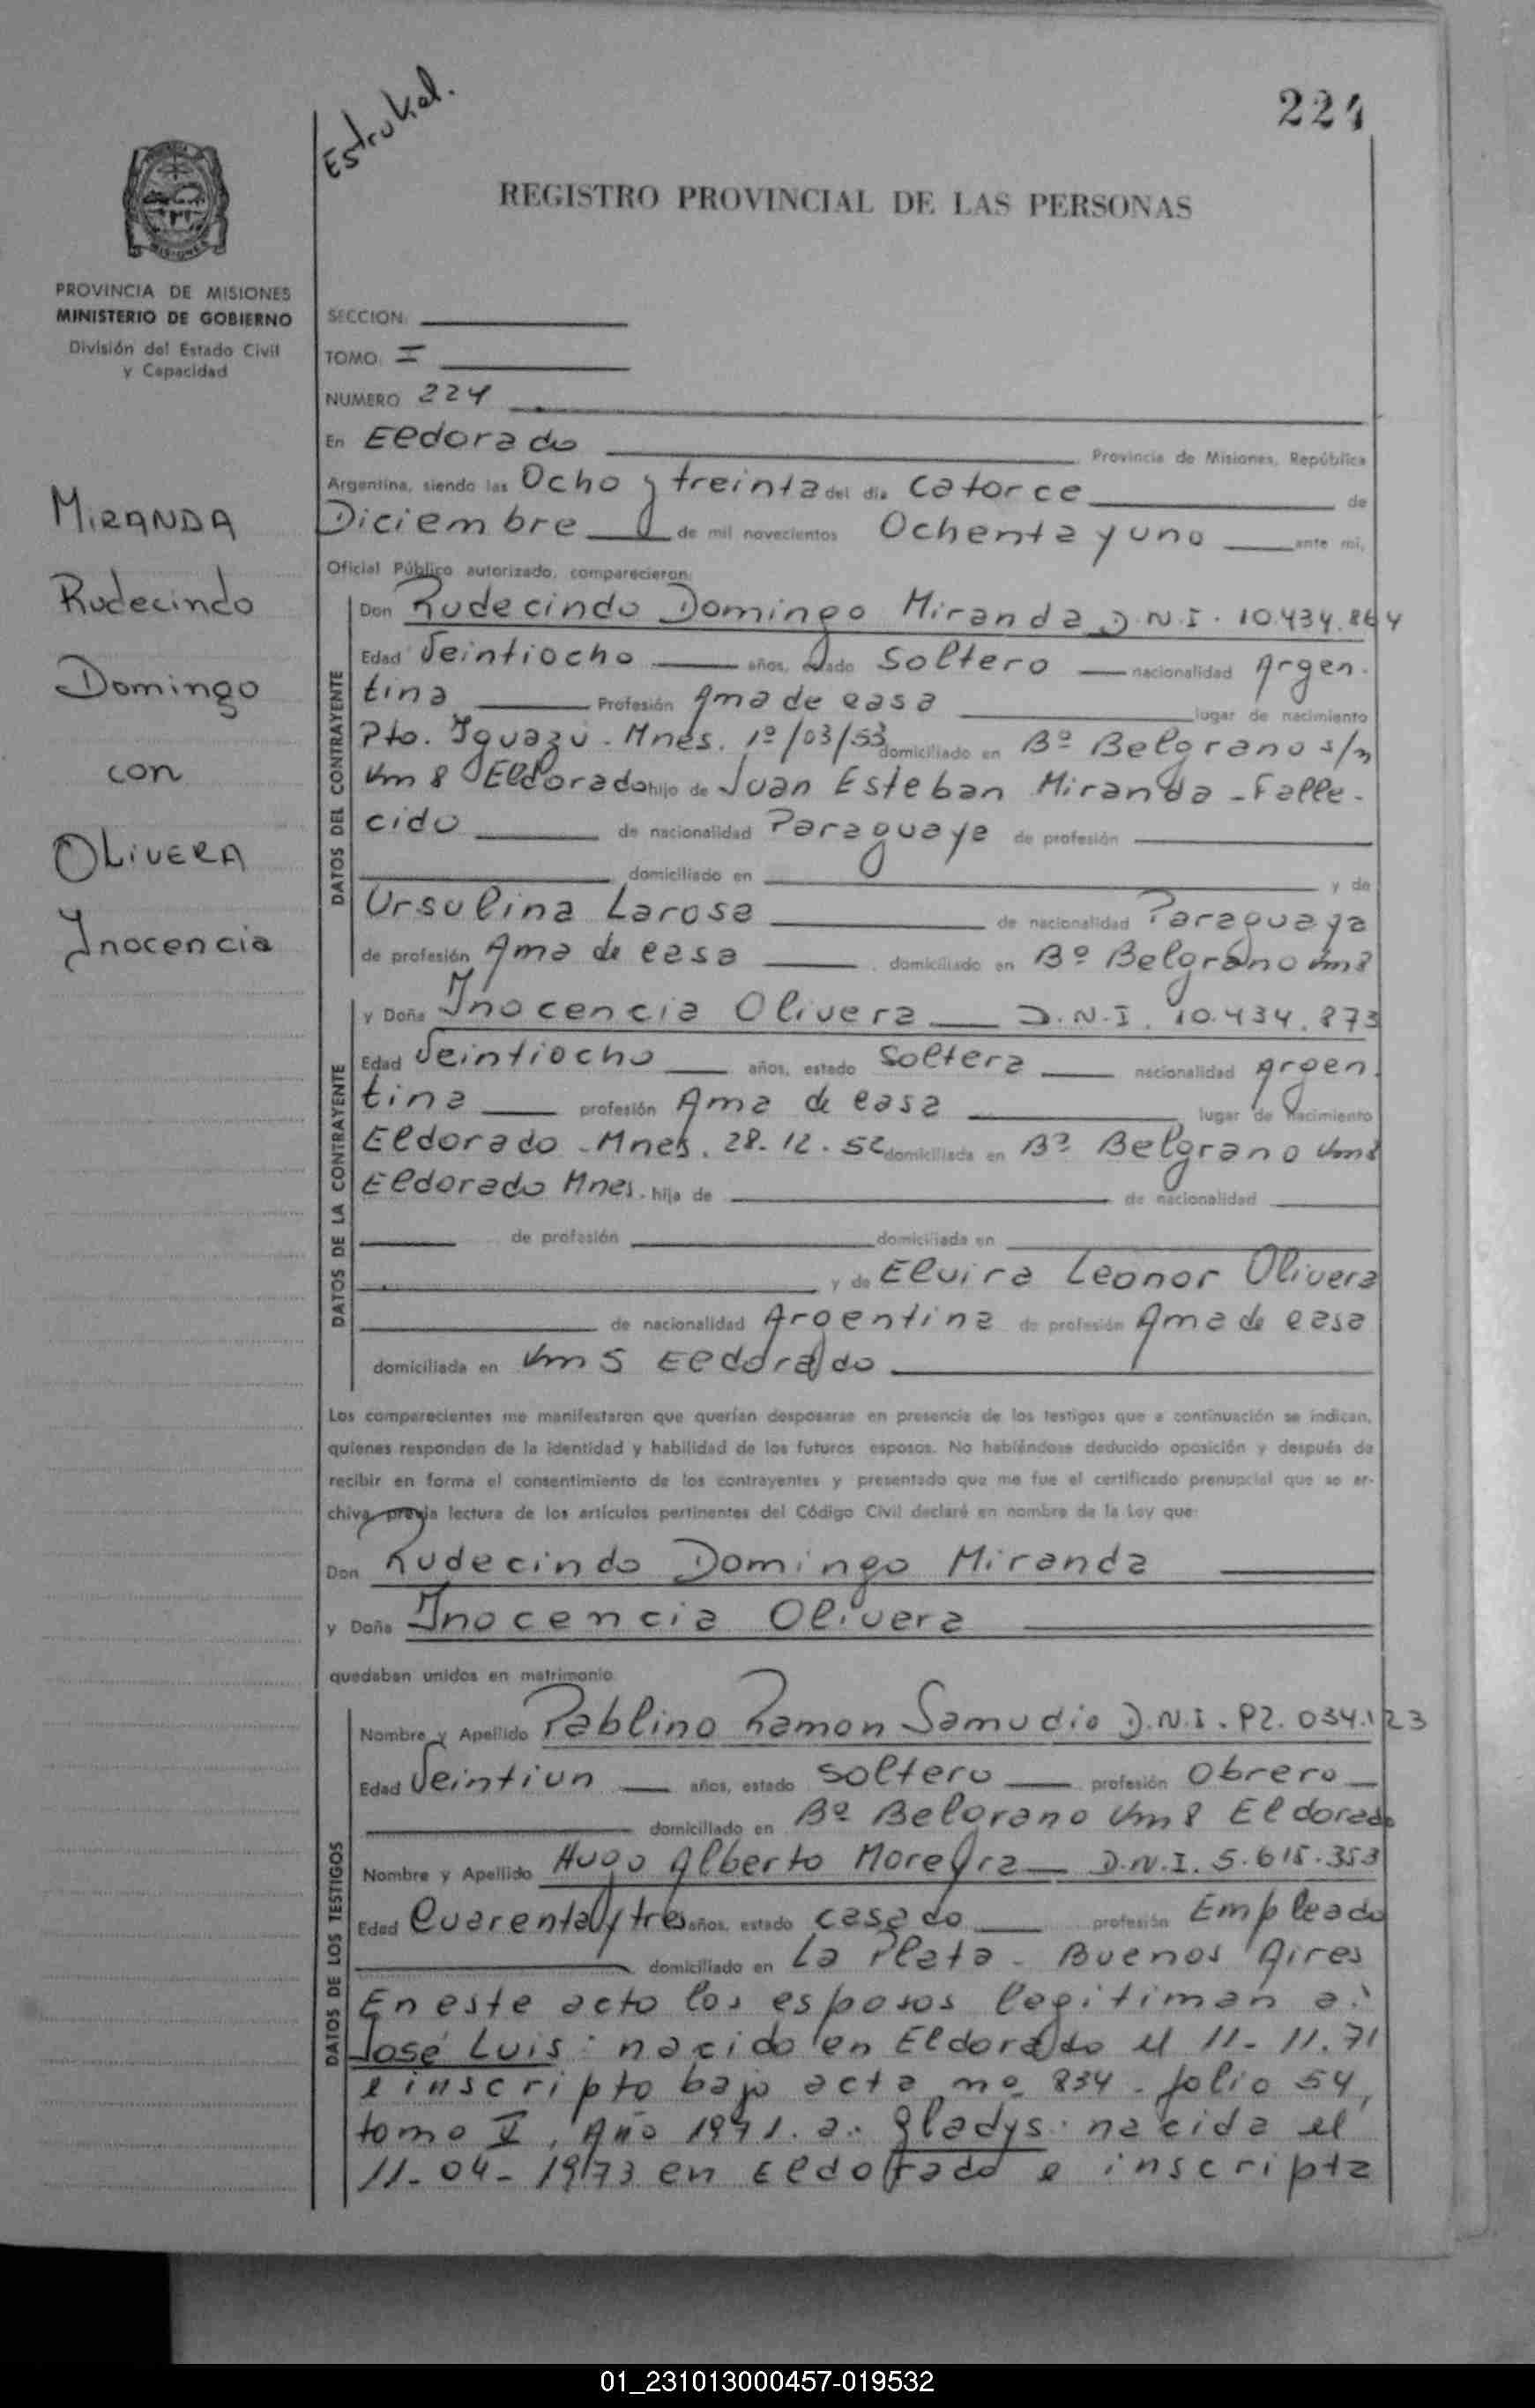 224
Estrukel.
REGISTRO PROVINCIAL DE LAS PERSONAS
MISIONES
PROVINCIA DE MISIONES
MINISTERIO DE GOBIERNO
División del Estado Civil
y Capacidad
SECCION:
TOMO: I
NUMERO 224
En Eldorado Provincia de Misiones, República
Argentina, siendo las Ocho y treinta del día catorce de
Diciembre de mil novecientos Ochenta y uno ante mí,
Oficial Público autorizado, comparecieron:
MIRANDA
Rudecindo
Domingo
con
OLIVERA
Inocencia
DATOS DEL CONTRAYENTE
Don Rudecindo Domingo Miranda D.N.I. 10.434.864
Edad Veintiocho años, estado Soltero nacionalidad Argen.
tina Profesión Ama de casa lugar de nacimiento
Pto. Iguazú - Mnes. 1º/03/53 domiciliado en Bº Belgrano s/n
Km 8 Eldorado hijo de Juan Esteban Miranda - Falle-
cido de nacionalidad Paraguaye de profesión
domiciliado en y de
Ursulina Larosa de nacionalidad Paraguaya
de profesión Ama de casa domiciliado en Bº Belgrano Km8
DATOS DE LA CONTRAYENTE
y Doña Inocencia Olivera D.N.I. 10.434.873
Edad Veintiocho años, estado Soltera nacionalidad Argen.
tina profesión Ama de casa lugar de nacimiento
Eldorado - Mnes. 28-12-52 domiciliada en Bº Belgrano Km8
Eldorado Mnes. hija de de nacionalidad
de profesión domiciliada en
y de Elvira Leonor Olivera
de nacionalidad Argentina de profesión Ama de casa
domiciliada en Km 5 Eldorado
Los comparecientes me manifestaron que querían desposarse en presencia de los testigos que a continuación se indican,
quienes responden de la identidad y habilidad de los futuros esposos. No habiéndose deducido oposición y después de
recibir en forma el consentimiento de los contrayentes y presentado que me fue el certificado prenupcial que se ar-
chiva, previa lectura de los artículos pertinentes del Código Civil declaré en nombre de la Ley que:
Don Rudecindo Domingo Miranda
y Doña Inocencia Olivera
quedaban unidos en matrimonio.
DATOS DE LOS TESTIGOS
Nombre y Apellido Pablino Ramon Samudio D.N.I. P2.034.123
Edad Veintiun años, estado soltero profesión Obrero
domiciliado en Bº Belgrano Km 8 Eldorado
Nombre y Apellido Hugo Alberto Moreyra D.N.I. 5.615.353
Edad Cuarenta y tres años, estado casado profesión Empleado
domiciliado en La Plata - Buenos Aires
En este acto los esposos legitiman a:
José Luis: nacido en Eldorado el 11-11.71
e inscripto bajo acta nº 834 - folio 54,
tomo V, Año 1971. a: Gladys: nacida el
11-04-1973 en Eldorado e inscripta
01_231013000457-019532